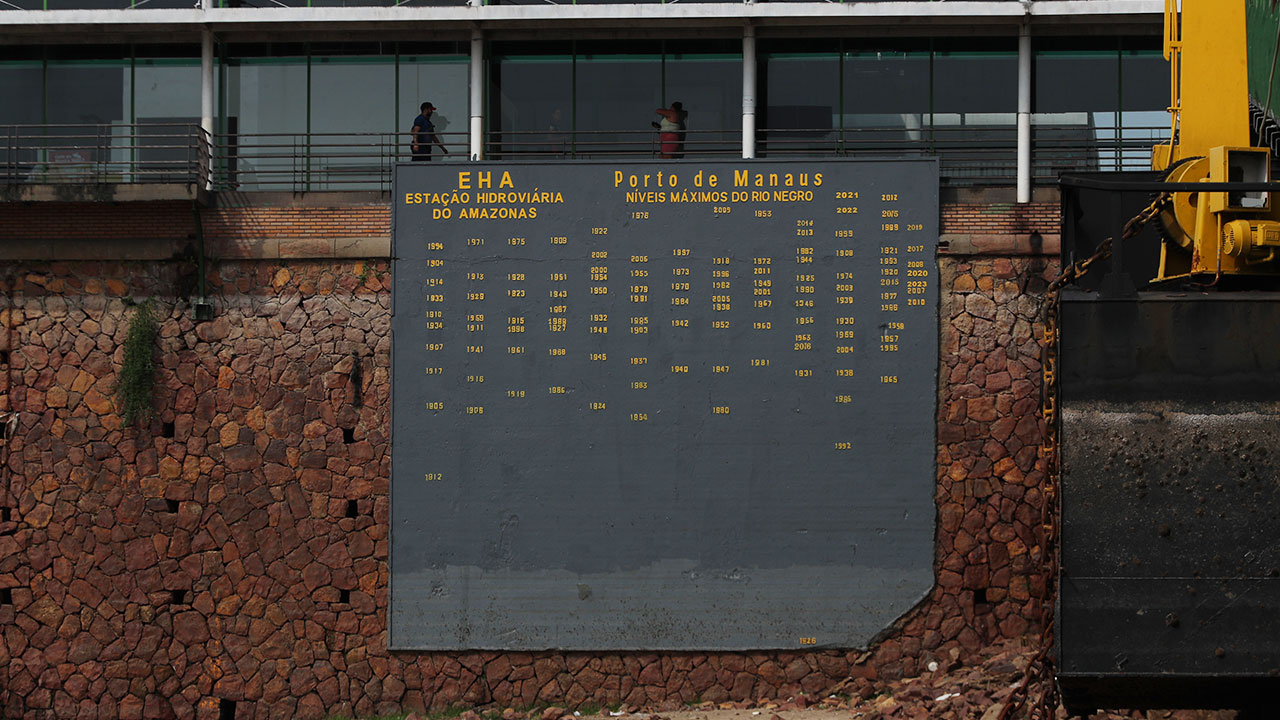 EHA
ESTAÇÃO HIDROVIÁRIA
DO AMAZONAS
Porto de Manaus
NÍVEIS MÁXIMOS DO RIO NEGRO
2021
2012
2022
2015
2009
1953
1976
2014
2013
1999
1989 2019
1922
1971 1975 1909
2002
2006
1997
1918 1972
1982
1944
1908
1921 2017
1993 2008
1904
1914 1913 1928 1951
2000
1955 1973 1996 2011
1925 1974
1920 2020
2023
2007
1950 1979 1970 1962 1949
2001
1990 2003
1933 1929 1923 1943
1981 1984 2005
1938
1967
1946 1939
1977 2010
1910 1959 1915
1932 1985
1956 1930
1958
1934 1911
1927 1948 1903 1942 1952 1960
1963
1969
1957
1907 1941 1961 1968
2004
1995
1945 1937
1981
1917
1940 1947
1931 1938
1965
1916
1919 1986
1983
1985
1905 1906
1924
1980
1992
1912
1926